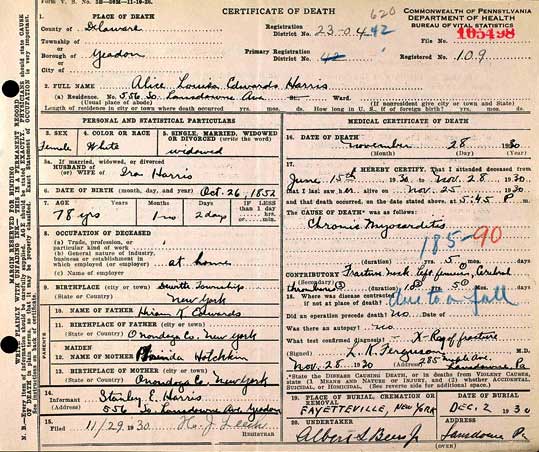 CERTIFICATE OF DEATH
COMMONWEALTH OF PENNSYLVANIA
DEPARTMENT OF HEALTH
BUREAU OF VITAL STATISTICS
620
1. PLACE OF DEATH
County of Delaware
Township of
or
Borough of Yeadon
or
City of
Registration District No. 23-04-42
Primary Registration District No. 42
File No. 105498
Registered No. 109
2. FULL NAME Alice Louisa Edwards Harris
(a) Residence. No. 556 So. Lansdowne Ave St. Ward.
(Usual place of abode)
(If nonresident give city or town and State)
Length of residence in city or town where death occurred yrs. mos. ds. How long in U.S., if of foreign birth? yrs. mos. ds.
PERSONAL AND STATISTICAL PARTICULARS
3. SEX
Female
4. COLOR OR RACE
White
5. SINGLE, MARRIED, WIDOWED
OR DIVORCED (write the word)
widowed
5a. If married, widowed, or divorced
HUSBAND of
(or) WIFE of Ira Harris
6. DATE OF BIRTH (month, day, and year) Oct. 26, 1852
7. AGE
78 yrs 1 mo 2 days
If LESS than
1 day, hrs.
or min.
8. OCCUPATION OF DECEASED
(a) Trade, profession, or
particular kind of work
(b) General nature of industry,
business or establishment in
which employed (or employer) at home
(c) Name of employer
9. BIRTHPLACE (city or town) Dewitt Township
(State or Country) New York
PARENTS
10. NAME OF FATHER Hiram K Edwards
11. BIRTHPLACE OF FATHER (city or town)
(State or Country) Onondaga Co. New York
12. MAIDEN NAME OF MOTHER Hotchkin
13. BIRTHPLACE OF MOTHER (city or town)
(State or Country) Onondaga Co. New York
14. Informant Stanley E. Harris
(Address) 556 So. Lansdowne Ave Yeadon
15. Filed 11/29 1930 H. J. Leech
REGISTRAR
MEDICAL CERTIFICATE OF DEATH
16. DATE OF DEATH
November 28 1930
(Month) (Day) (Year)
17. I HEREBY CERTIFY, That I attended deceased from
June 15th 1930 to Nov. 28 1930
that I last saw her alive on Nov. 25 1930
and that death occurred, on the date stated above, at 5:45 P m.
The CAUSE OF DEATH* was as follows:
Chronic Myocarditis
185-90
(duration) yrs. 5 mos. ds.
CONTRIBUTORY Fracture neck left femur, Cerebral
(Secondary) thrombosis
due to a fall
18. Where was disease contracted
if not at place of death?
Did an operation precede death? No. Date of
Was there an autopsy? no
What test confirmed diagnosis? X-Ray of fracture
(Signed) L. K. Ferguson M.D.
Nov. 28 1930 (Address) Lansdowne, Pa
*State the DISEASE CAUSING DEATH, or in deaths from VIOLENT CAUSES, state (1) MEANS AND NATURE OF INJURY, and (2) whether ACCIDENTAL, SUICIDAL, or HOMICIDAL. (See reverse side for additional space.)
19. PLACE OF BURIAL, CREMATION OR REMOVAL
FAYETTEVILLE, NEW YORK
DATE OF BURIAL
DEC. 2 1930
20. UNDERTAKER
Albert S Beers Jr
ADDRESS
Lansdowne Pa
(OVER)
MARGIN RESERVED FOR BINDING